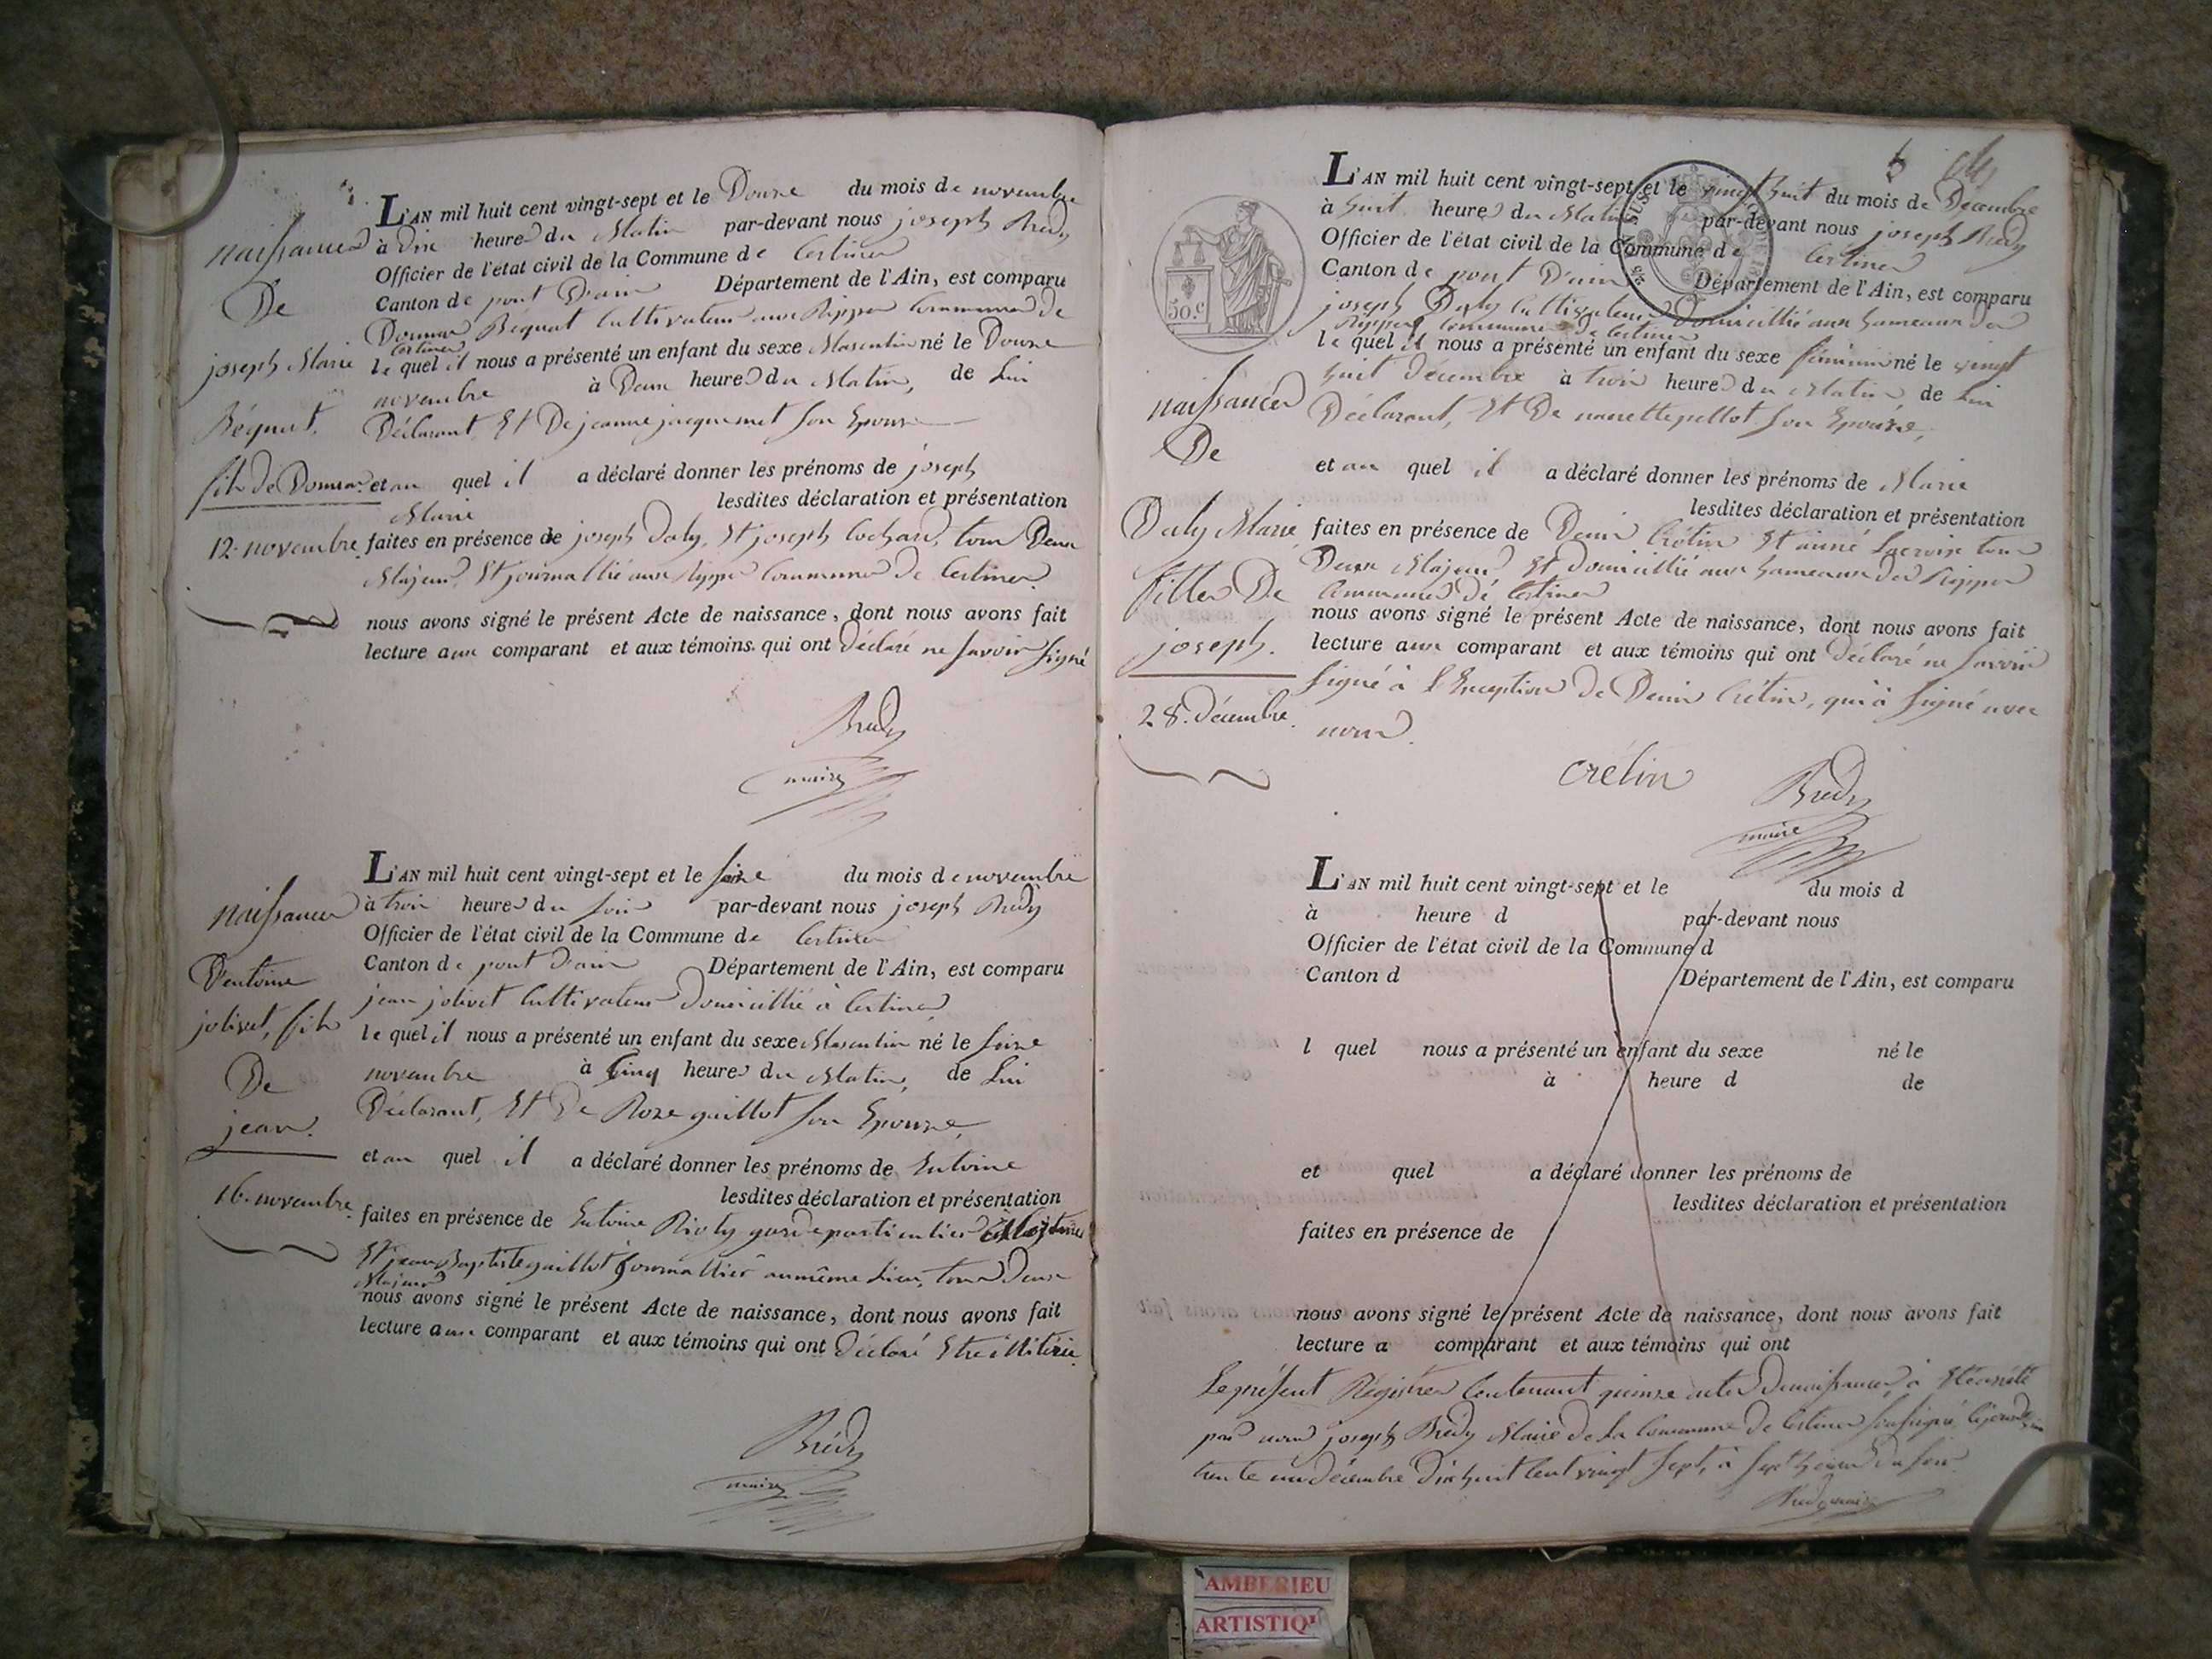 L'AN mil huit cent vingt-sept et le Douze du mois de novembre
à dix heures du Matin par-devant nous joseph Bredy
Officier de l'état civil de la Commune de Certines
Canton de pont D'ain Département de l'Ain, est comparu
Béquat Cultivateur aux Rippes Commune de
Certines
le quel il nous a présenté un enfant du sexe Masculin né le Douze
novembre à Deux heures du Matin, de Lui
Déclarant, Et De jeanne jacquemet son Epouse
et au quel il a déclaré donner les prénoms de joseph
Marie lesdites déclaration et présentation
faites en présence de joseph Daly, Et joseph Cochard, tous Deux
Majeurs, Et aux Rippes Commune de Certines
nous avons signé le présent Acte de naissance, dont nous avons fait
lecture aux comparant et aux témoins qui ont Déclaré ne savoir signé
Bredy
maire
naissance
De
joseph Marie
Béquat.
fils de
12 novembre
L'AN mil huit cent vingt-sept et le seize du mois de novembre
à trois heures du soir par-devant nous joseph Bredy
Officier de l'état civil de la Commune de Certines
Canton de pont D'ain Département de l'Ain, est comparu
jean jolivet Cultivateur Domicillié à Certines
le quel il nous a présenté un enfant du sexe Masculin né le seize
novembre à Cinq heures du Matin, de Lui
Déclarant, Et De Roze guillot son Epouse,
et au quel il a déclaré donner les prénoms de Entoine
lesdites déclaration et présentation
faites en présence de Entoine garde particulier
Et jean Baptiste guillot journallier au même Lieu, tous Deux
Majeurs
nous avons signé le présent Acte de naissance, dont nous avons fait
lecture aux comparant et aux témoins qui ont Déclaré
Brédy
maire
naissance
D'entoine
jolivet, fils
De
jean.
16 novembre
L'AN mil huit cent vingt-sept et le vingt huit du mois de Décembre
à huit heures du Matin par-devant nous joseph Bredy
Officier de l'état civil de la Commune de Certines
Canton de pont D'ain Département de l'Ain, est comparu
joseph Daly Cultivateur Domicillié aux hameaux des
Rippes Commune de Certines
le quel il nous a présenté un enfant du sexe féminin né le vingt
huit Décembre à trois heures du Matin de Lui
Déclarant, Et De nanette pellot son Epouse,
et au quel il a déclaré donner les prénoms de Marie
lesdites déclaration et présentation
faites en présence de Denis Crétin Et aimé Lacroix tous
Deux Majeurs Et Domicillié aux hameaux des Rippes
Commune de Certines
nous avons signé le présent Acte de naissance, dont nous avons fait
lecture aux comparant et aux témoins qui ont déclaré ne savoir
signé à l'Exception de Denis Crétin, qui à signé avec
nous.
crétin
Bredy
maire
50.c
naissance
De
Daly Marie
fille De
joseph.
28. décembre.
L'AN mil huit cent vingt-sept et le du mois d
à heure d par-devant nous
Officier de l'état civil de la Commune d
Canton d Département de l'Ain, est comparu
l quel nous a présenté un enfant du sexe né le
à heure d de
et quel a déclaré donner les prénoms de
lesdites déclaration et présentation
faites en présence de
nous avons signé le présent Acte de naissance, dont nous avons fait
lecture a comparant et aux témoins qui ont
Le présent Régistre Contenant quinze actes De naissance, à
par nous joseph Brédy Maire de la Commune De Certines soussigné
trente un décembre Dix huit Cent vingt sept, à sept heures du soir.
Bredy maire
AMBERIEU
ARTISTIQ